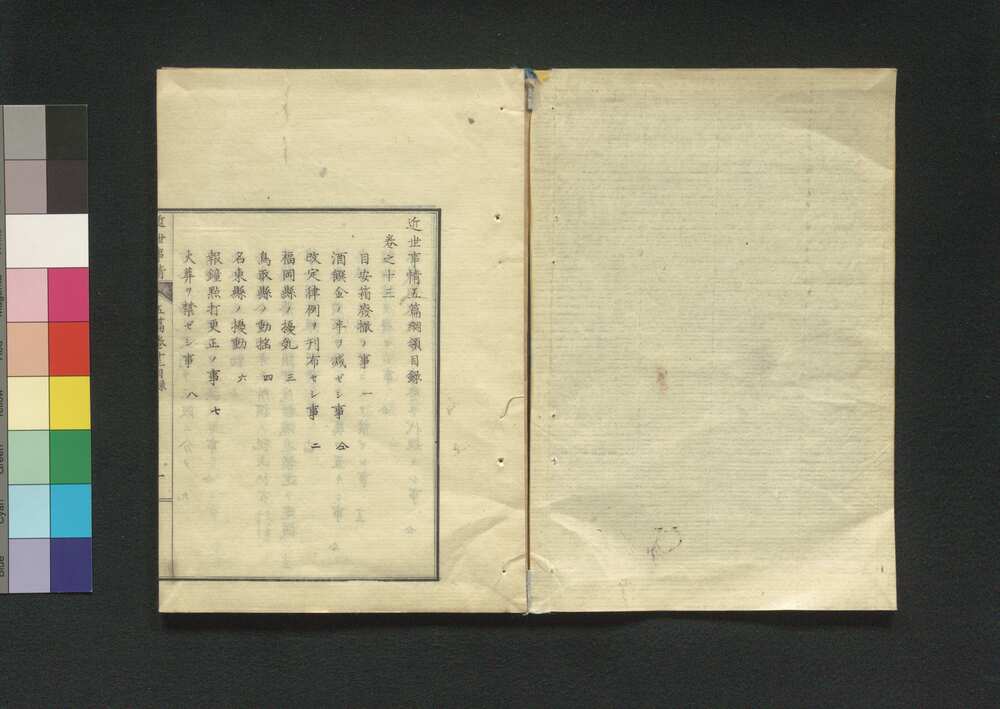 近世事情五篇綱領目録
巻之十三
目安箱廢撤ノ事 一
酒饌金ノ半ヲ減ゼシ事 仝
改定律例ヲ刊布セシ事 二
福岡縣ノ擾乱 三
鳥取縣ノ動揺 四
名東縣ノ擾動 六
報鐘點打更正ノ事 七
火葬ヲ禁ゼシ事 八
近世事情 五篇巻十三目録 一